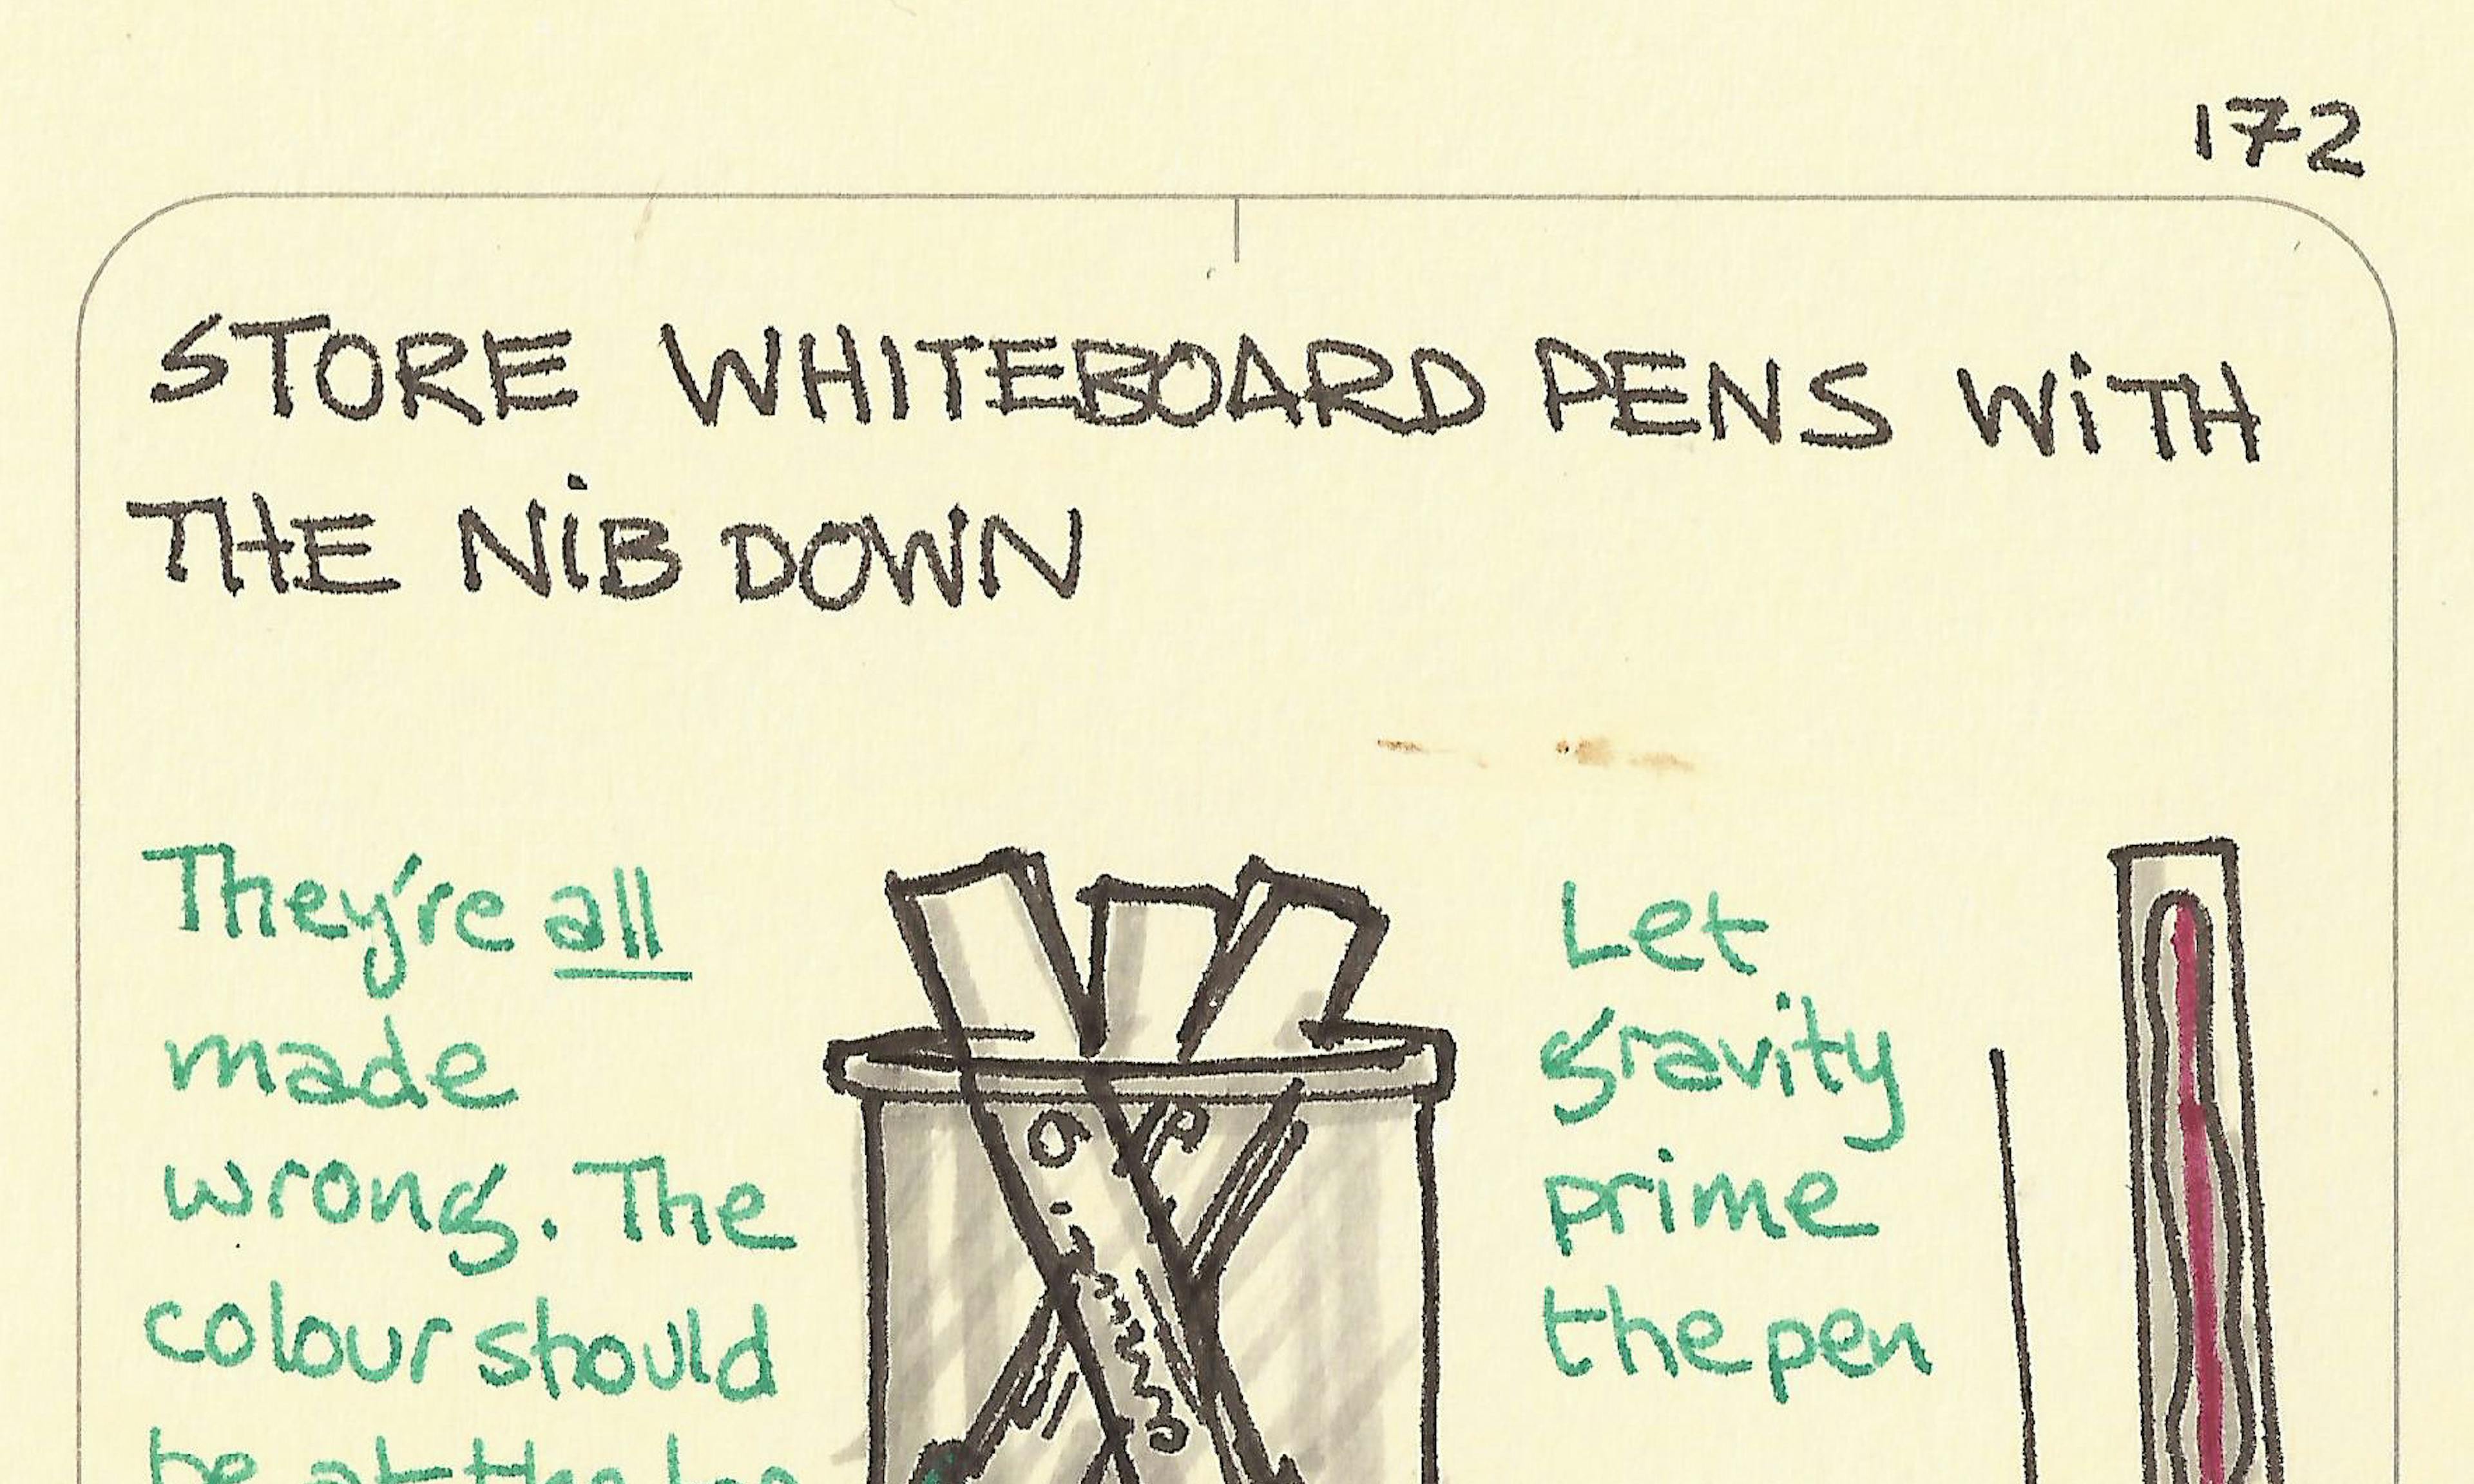 172
STORE WHITEBOARD PENS WiTH
THE NiB DOWN
They're all
made
wrong. The
colour should
be at the
Let
gravity
prime
the pen